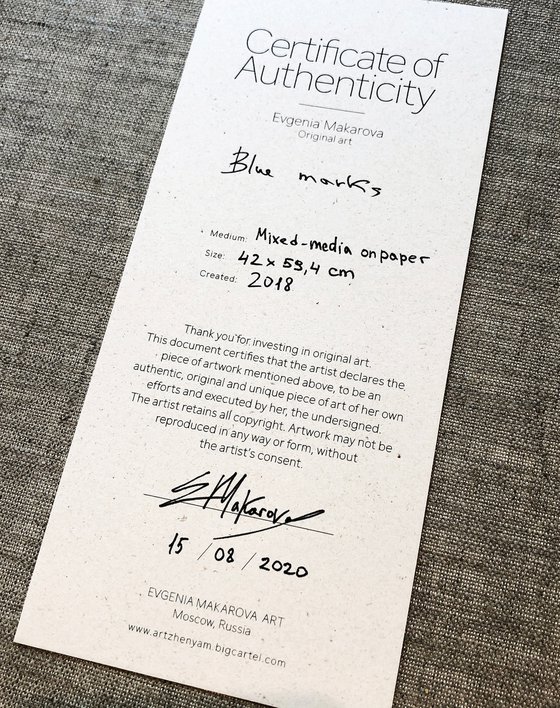 Certificate of
Authenticity
Evgenia Makarova
Original art
Blue marks
Medium: Mixed-media on paper
Size: 42 x 59,4 cm
Created: 2018
Thank you for investing in original art.
This document certifies that the artist declares the
piece of artwork mentioned above, to be an
authentic, original and unique piece of art of her own
efforts and executed by her, the undersigned.
The artist retains all copyright. Artwork may not be
reproduced in any way or form, without
the artist's consent.
EMakarova
15 / 08 / 2020
EVGENIA MAKAROVA ART
Moscow, Russia
www.artzhenyam.bigcartel.com